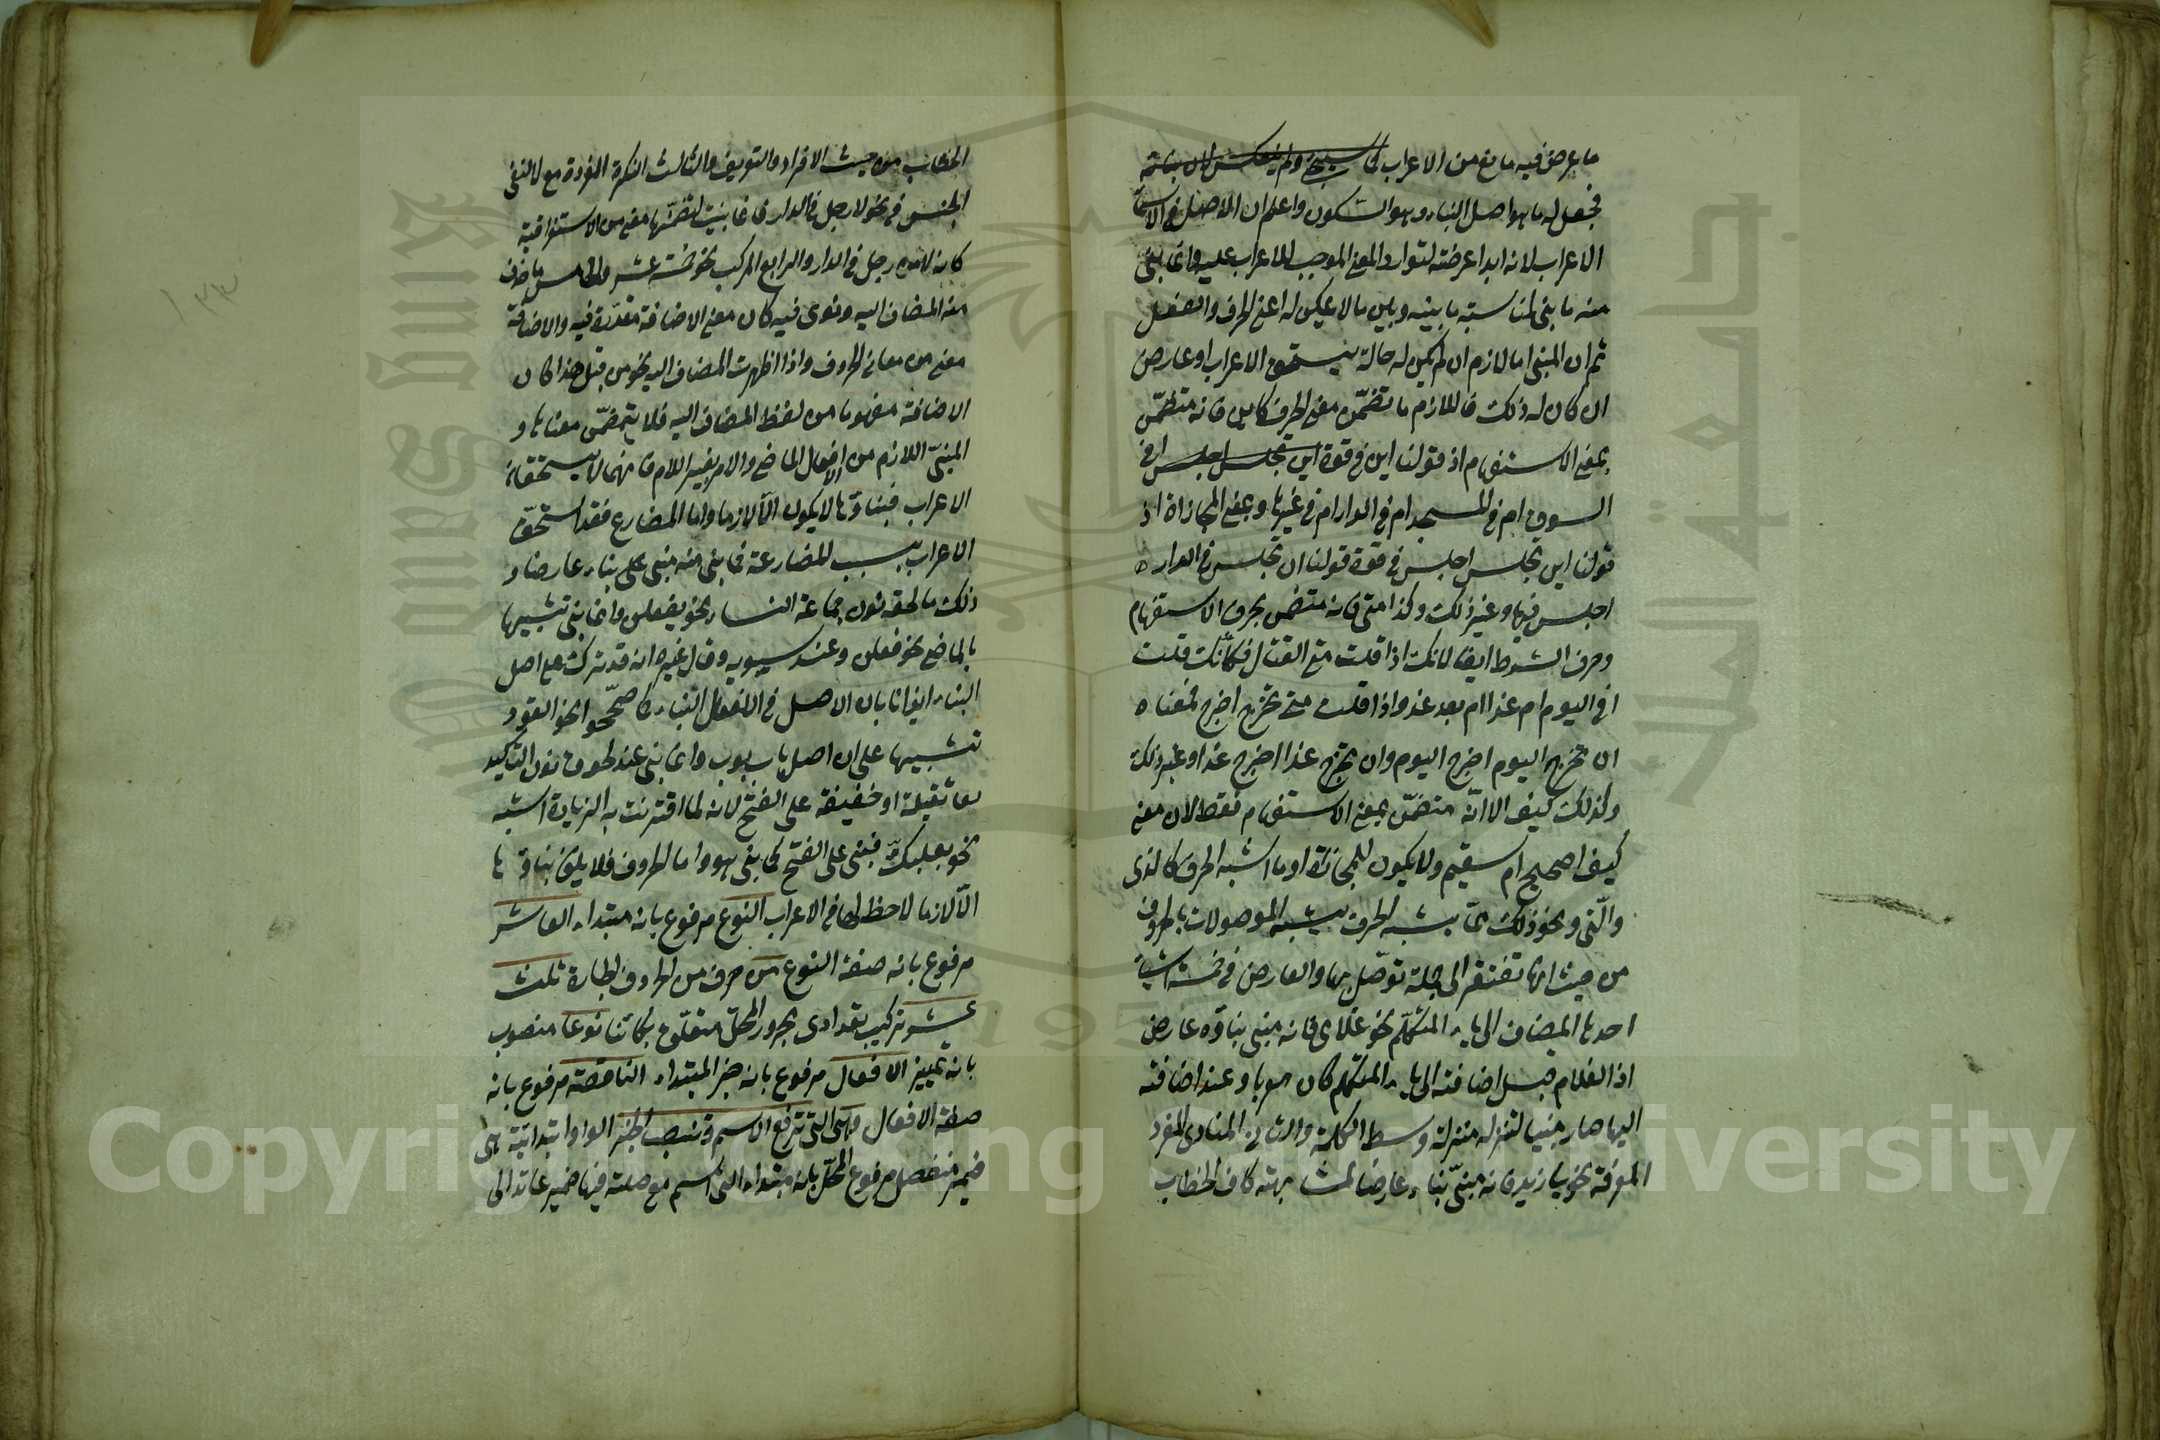 ما عرض فيه مانع من الاعراب كما سيجئ ولم ينعكس لان بنائه
فجعل له ما هو اصل البناء وهو السكون واعلم ان الاصل في الاسماء
الاعراب لانه ابدا عرضة لتوارد المعنى الموجب للاعراب عليه وانما بنى
منه ما بنى لمناسبة ما بينه وبين ما لا يمكن له اعنى الحرف والفعل
ثم ان المبنى اما لازم ان لم يكن له حالة يستحق الاعراب او عارض
ان كان له ذلك فاللازم ما تضمّن معنى الحرف كاين فانه متضمّن
بمعنى الاستفهام اذ قولنا اين في قوة اين تجلس اجلس افى
السوق ام في المسجد ام في الدار ام في غيرها وبمعنى المجازاة اذ
قولنا اين تجلس اجلس في قوة قولنا ان تجلس في الدار
اجلس فيها وغير ذلك وكذا متى فانه متضمن بحرف الاستفهام
وحرف الشرط ايضا لانك اذا قلت متى القتال فكأنك قلت
افى اليوم ام غدا ام بعد غد واذا قلت متى تخرج اخرج فمعناه
ان تخرج اليوم اخرج اليوم وان تخرج غدا اخرج غدا وغير ذلك
وكذلك كيف الا انّه متضمّن بمعنى الاستفهام فقط لان معنى
كيف اصحيح ام سقيم ولا يكون للمجازاة او ما اشبه الحرف كالذى
والّتى ونحو ذلك ممّا يشبه الحرف يشبه الموصولات بالحروف
من حيث انها تفتقر الى جملة توصّل بها والعارض في خمسة اشياء
احدها المضاف الى ياء المتكلّم نحو غلامى فانه مبنى بناؤه عارض
اذ الغلام قبل اضافته الى ياء المتكلم كان معربا وعند اضافته
اليها صار مبنيا لتنزله منزلة وسط الكلمة والثانى المنادى المفرد
المعرفة نحو يا زيد فانه مبنىّ بناء عارضا لمشابهته كاف الخطاب
الخطاب من حيث الافراد والتعريف والثالث النكرة المفردة مع لا لنفى
الجنس في نحو لا رجل في الدار فانما بنيت لتضمّنها معنى من الاستغراقية
كانه لا من رجل في الدار والرابع المركب نحو خمسة عشر والخامس ما حذف
منه المضاف اليه ونوى فيه كان معنى الاضافة مقدّرة فيه والاضافة
معنى من معانى الحروف واذا اظهرت المضاف اليه نحو من قبل هذا كان
الاضافة مفهوما من لفظ المضاف اليه فلا يتضمّن معناها و
المبنىّ اللازم من الافعال الماضى والامر بغير اللام فانهما لا يستحقان
الاعراب فبناؤها لا يكون الّا لازما واما المضارع فقد استحقّ
الاعراب بسبب المضارعة فما بنى منه مبنى على بناء عارضا و
ذلك ما لحقه نون جماعة النساء نحو يفعلن وانما بنى تشبيها
بالماضى نحو فعلن وعند سيبويه وقال غيره انه قد ترك على اصل
البناء ايذانا بان الاصل في الافعال البناء كما صحّحوا نحو القود
تنبيها على ان اصل باب بوب وانما بنى عند لحوق نون التاكيد
بها ثقيلة او خفيفة على الفتح لانه لما اقترنت به الزيادة اشبه
نحو بعلبكّ فبنى على الفتح كما بنى هو واما الحروف فلا يكون بناؤها
الّا لازما لا حظ لها في الاعراب النوع مرفوع بانه مبتداء العاشر
مرفوع بانه صفة النوع من حرف من الحروف الجارة ثلث
عشر تركيب تعدادى مجرور المحلّ متعلّق بكائنا نوعا منصوب
بانه تمييز الافعال مرفوع بانه خبر المبتداء الناقصة مرفوع بانه
صفة الافعال وهى التى ترفع الاسم وتنصب الخبر الواو ابتدائية هى
ضمير منفصل مرفوع المحلّ بانه مبتداء التى اسم مع صلته فيها ضمير عائد الى